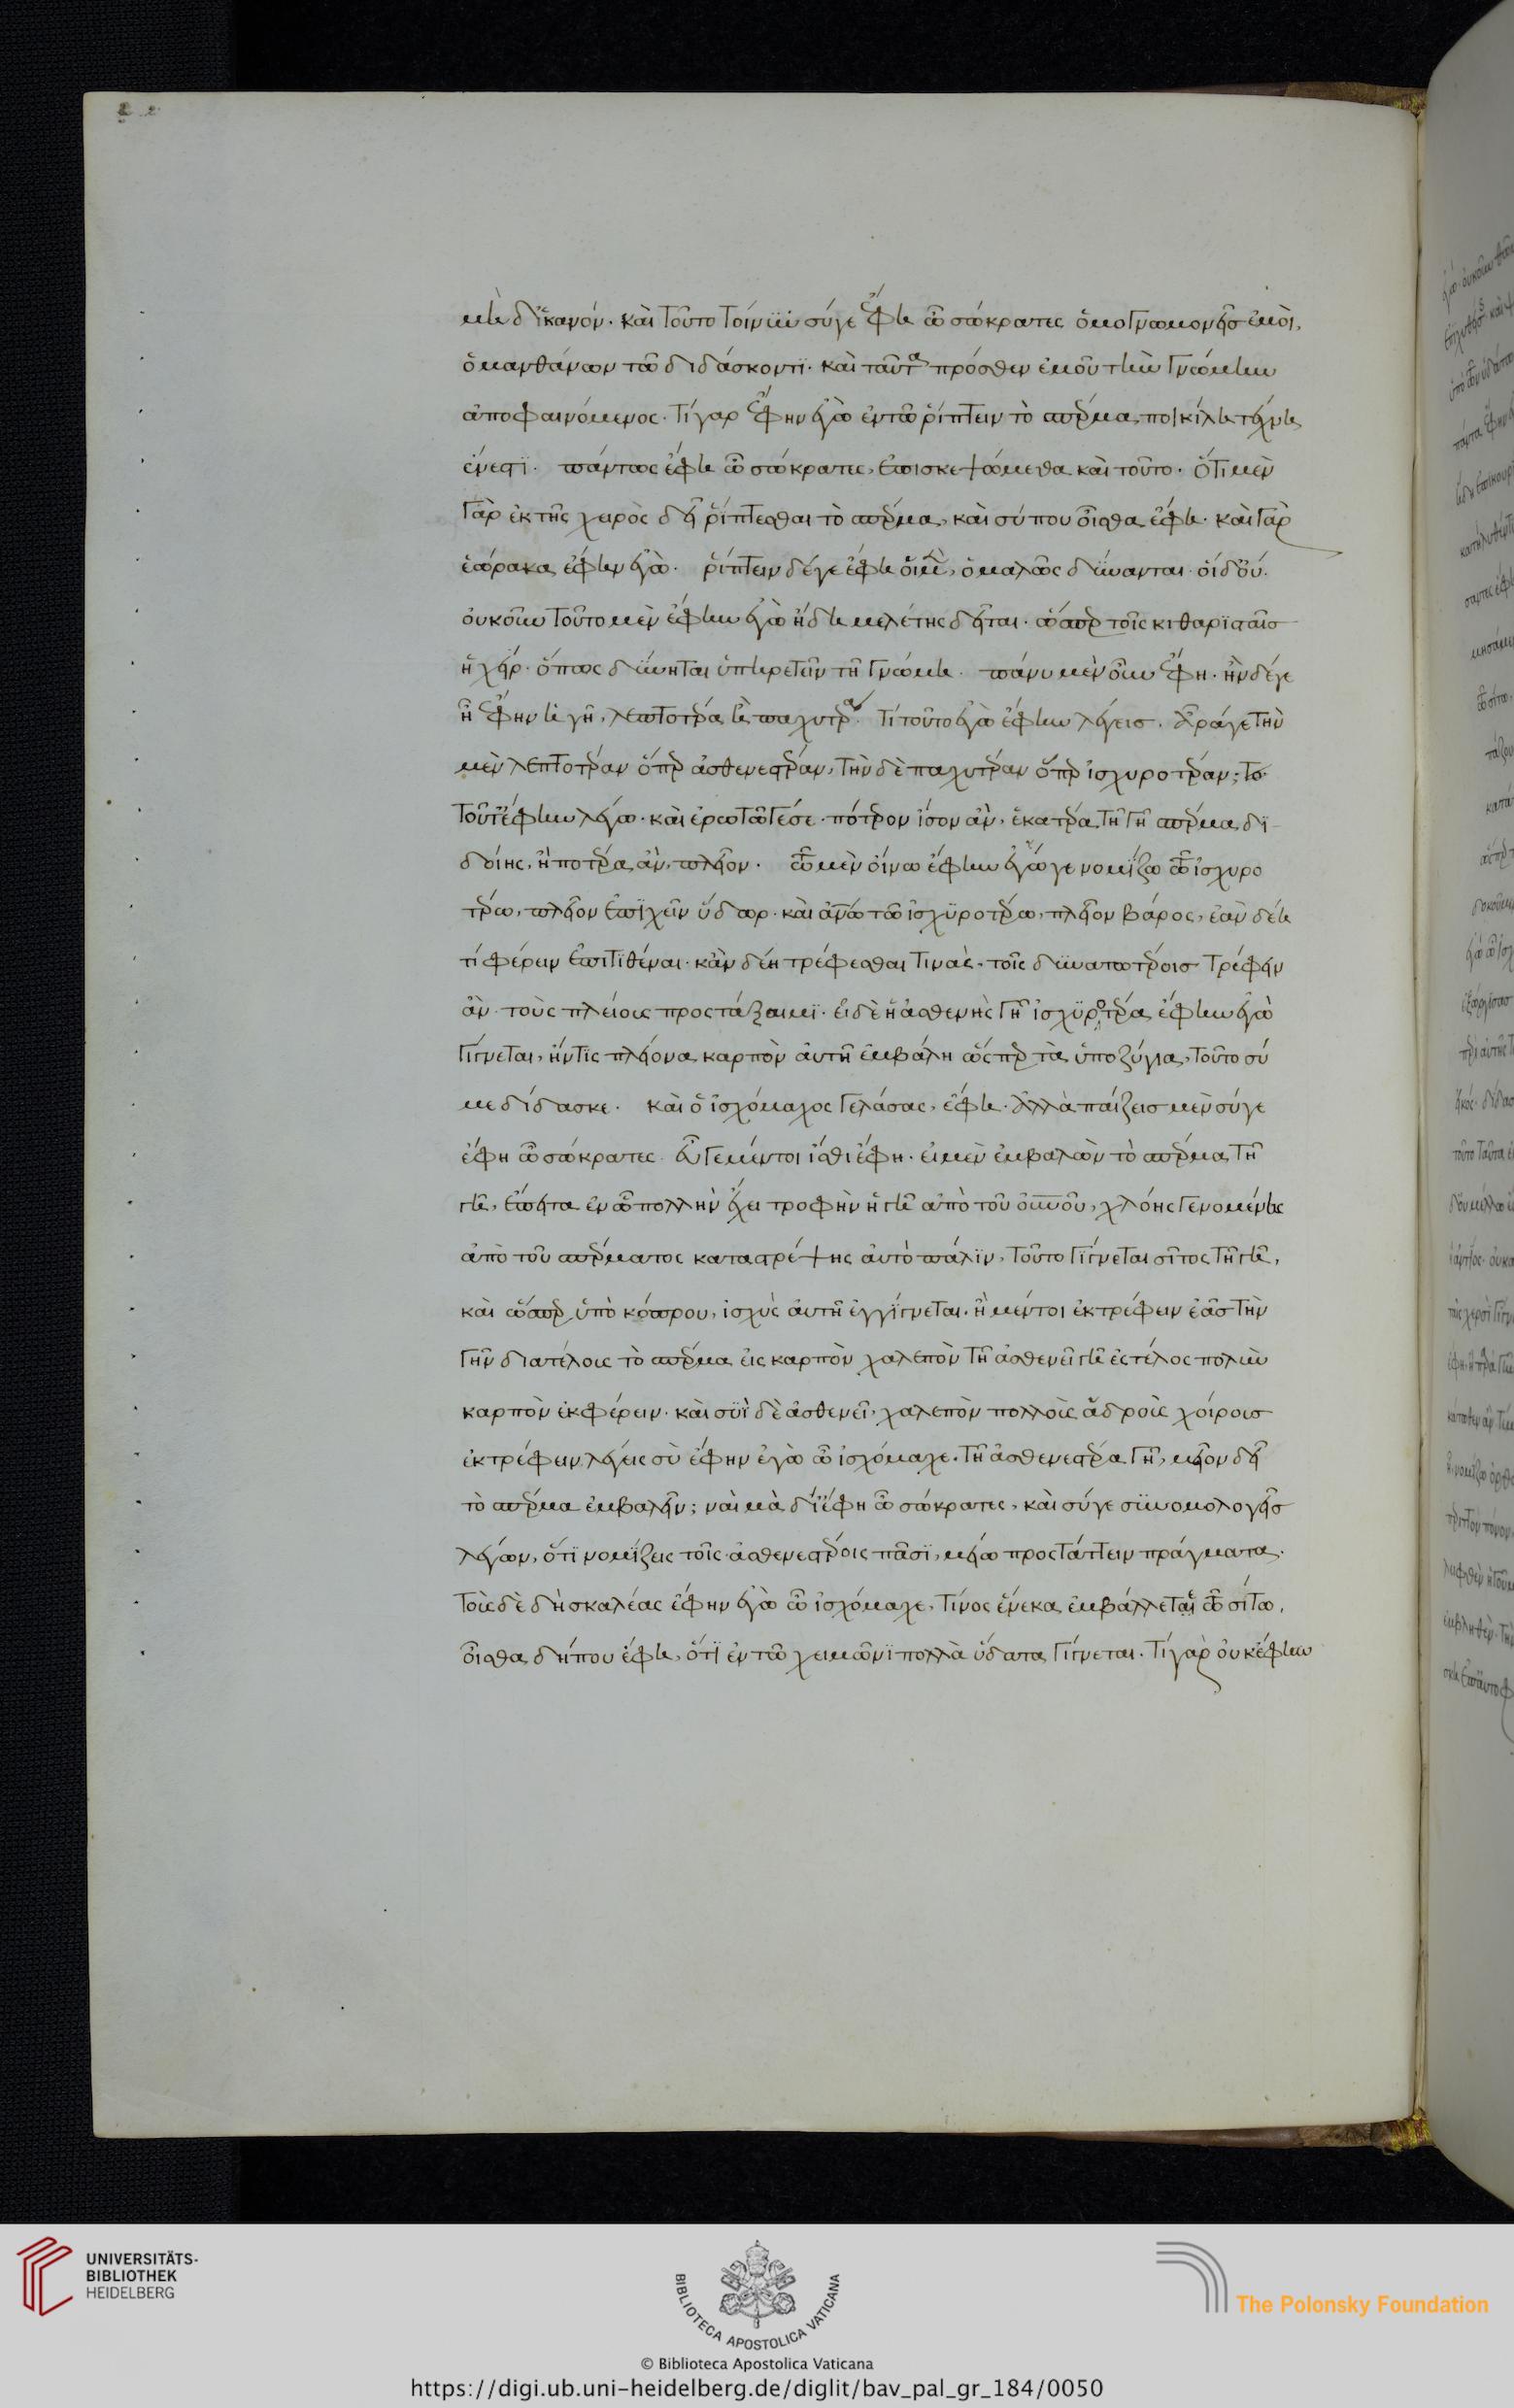 μὴ δ' ἱκανόν. καὶ τοῦτο τοίνυν σύγε ἔφη ὦ σώκρατες ὁμογνωμονεῖς ἐμοὶ,
ὁ μανθάνων τῶ διδάσκοντι. καὶ ταῦτα πρόσθεν ἐμοῦ τὴν γνώμην
ἀποφαινόμενος. τί γαρ ἔφην ἐγὼ ἐν τῶ ῥίπτειν τὸ σπέρμα, ποικίλη τέχνη
ἔνεστι. πάντως ἔφη ὦ σώκρατες, ἐπισκεψώμεθα καὶ τοῦτο. ὅτι μὲν
γὰρ ἐκ τῆς χειρὸς δεῖ ῥίπτεσθαι τὸ σπέρμα, καὶ σύ που οἶσθα ἔφη. καὶ γὰρ
ἑώρακα ἔφην ἐγὼ. ῥίπτειν δέγε ἔφη οἱ μὲν, ὁμαλῶς δύνανται. οἱ δ' οὔ.
οὐκοῦν τοῦτο μὲν ἔφην ἐγὼ ἤδη μελέτης δεῖται. ὥσπερ τοῖς κιθαρισταῖς
ἡ χεὶρ. ὅπως δύνηται ὑπηρετεῖν τῆ γνώμη. πάνυ μὲν οὖν ἔφη. ἢν δέγε
ἦ ἔφην ἡ γῆ, λεπτοτέρα ἢ παχυτέρα. τί τοῦτο ἐγὼ ἔφην λέγεις. ἆράγε τὴν
μὲν λεπτοτέραν ὅπερ ἀσθενεστέραν, τὴν δὲ παχυτέραν ὅπερ ἰσχυροτέραν; το
τοῦτ' ἔφην λέγω. καὶ ἐρωτῶ γέ σε. πότερον ἴσον ἂν, ἑκατέρα τῆ γῆ σπέρμα δι-
δοίης, ἢ ποτέρα ἂν, πλεῖον. τῶ μὲν οἴνω ἔφην ἐγώγε νομίζω τῶ ἰσχυρο
τέρω, πλεῖον ἐπιχεῖν ὕδωρ. καὶ ἀνῶ τῶ ἰσχυροτέρω, πλεῖον βάρος, ἐὰν δέη
τί φέρειν ἐπιτιθέναι. κἂν δέη τρέφεσθαι τινὰς, τοῖς δυνατωτέροις τρέφειν
ἂν τοὺς πλείους προστάξαιμι. εἰ δὲ ἡ ἀσθενὴς γῆ ἰσχυροτέρα ἔφην ἐγὼ
γίγνεται, ἤν τις πλείονα καρπὸν αὐτῆ ἐμβάλη ὥσπερ τὰ ὑποζύγια, τοῦτο σύ
με δίδασκε. καὶ ὁ ἰσχόμαχος γελάσας, ἔφη. ἀλλὰ παίζεις μὲν σύγε
ἔφη ὦ σώκρατες. εὖ γε μέντοι ἴσθι ἔφη. εἰ μὲν ἐμβαλὼν τὸ σπέρμα τῆ
γῆ, ἔπειτα ἐν ὧ πολλὴν ἔχει τροφὴν ἡ γῆ ἀπὸ τοῦ οὐνοῦ, χλόης γενομένης
ἀπὸ τοῦ σπέρματος καταστρέψης αὐτὸ πάλιν, τοῦτο γίγνεται σῖτος τῆ γῆ,
καὶ ὥσπερ ὑπὸ κόπρου, ἰσχὺς αὐτῆ ἐγγίγνεται. ἢ μέντοι ἐκτρέφειν ἐᾶς τὴν
γῆν διατέλους τὸ σπέρμα εἰς καρπὸν χαλεπὸν τῆ ἀσθενεῖ γῆ ἐς τέλος πολὺν
καρπὸν ἐκφέρειν. καὶ συῒ δὲ ἀσθενεῖ, χαλεπὸν πολλοὺς ἁδροὺς χοίρους
ἐκτρέφειν, λέγεις σὺ ἔφην ἐγὼ ὦ ἰσχόμαχε. τῆ ἀσθενεστέρα γῆ, μεῖον δεῖ
τὸ σπέρμα ἐμβαλεῖν; ναὶ μὰ δί' ἔφη ὦ σώκρατες, καὶ σύγε συνομολογεῖς
λέγων, ὅτι νομίζεις τοῖς ἀσθενεστέροις πᾶσι, μείω προστάττειν πράγματα.
τοὺς δὲ δὴ σκαλέας ἔφην ἐγὼ ὦ ἰσχόμαχε, τίνος ἕνεκα ἐμβάλλεται τῶ σίτω,
οἶσθα δήπου ἔφη, ὅτι ἐν τῶ χειμῶνι πολλὰ ὕδατα γίγνεται. τί γὰρ οὐκ ἔφην
UNIVERSITÄTS-
BIBLIOTHEK
HEIDELBERG
BIBLIOTECA APOSTOLICA VATICANA
The Polonsky Foundation
© Biblioteca Apostolica Vaticana
https://digi.ub.uni-heidelberg.de/diglit/bav_pal_gr_184/0050